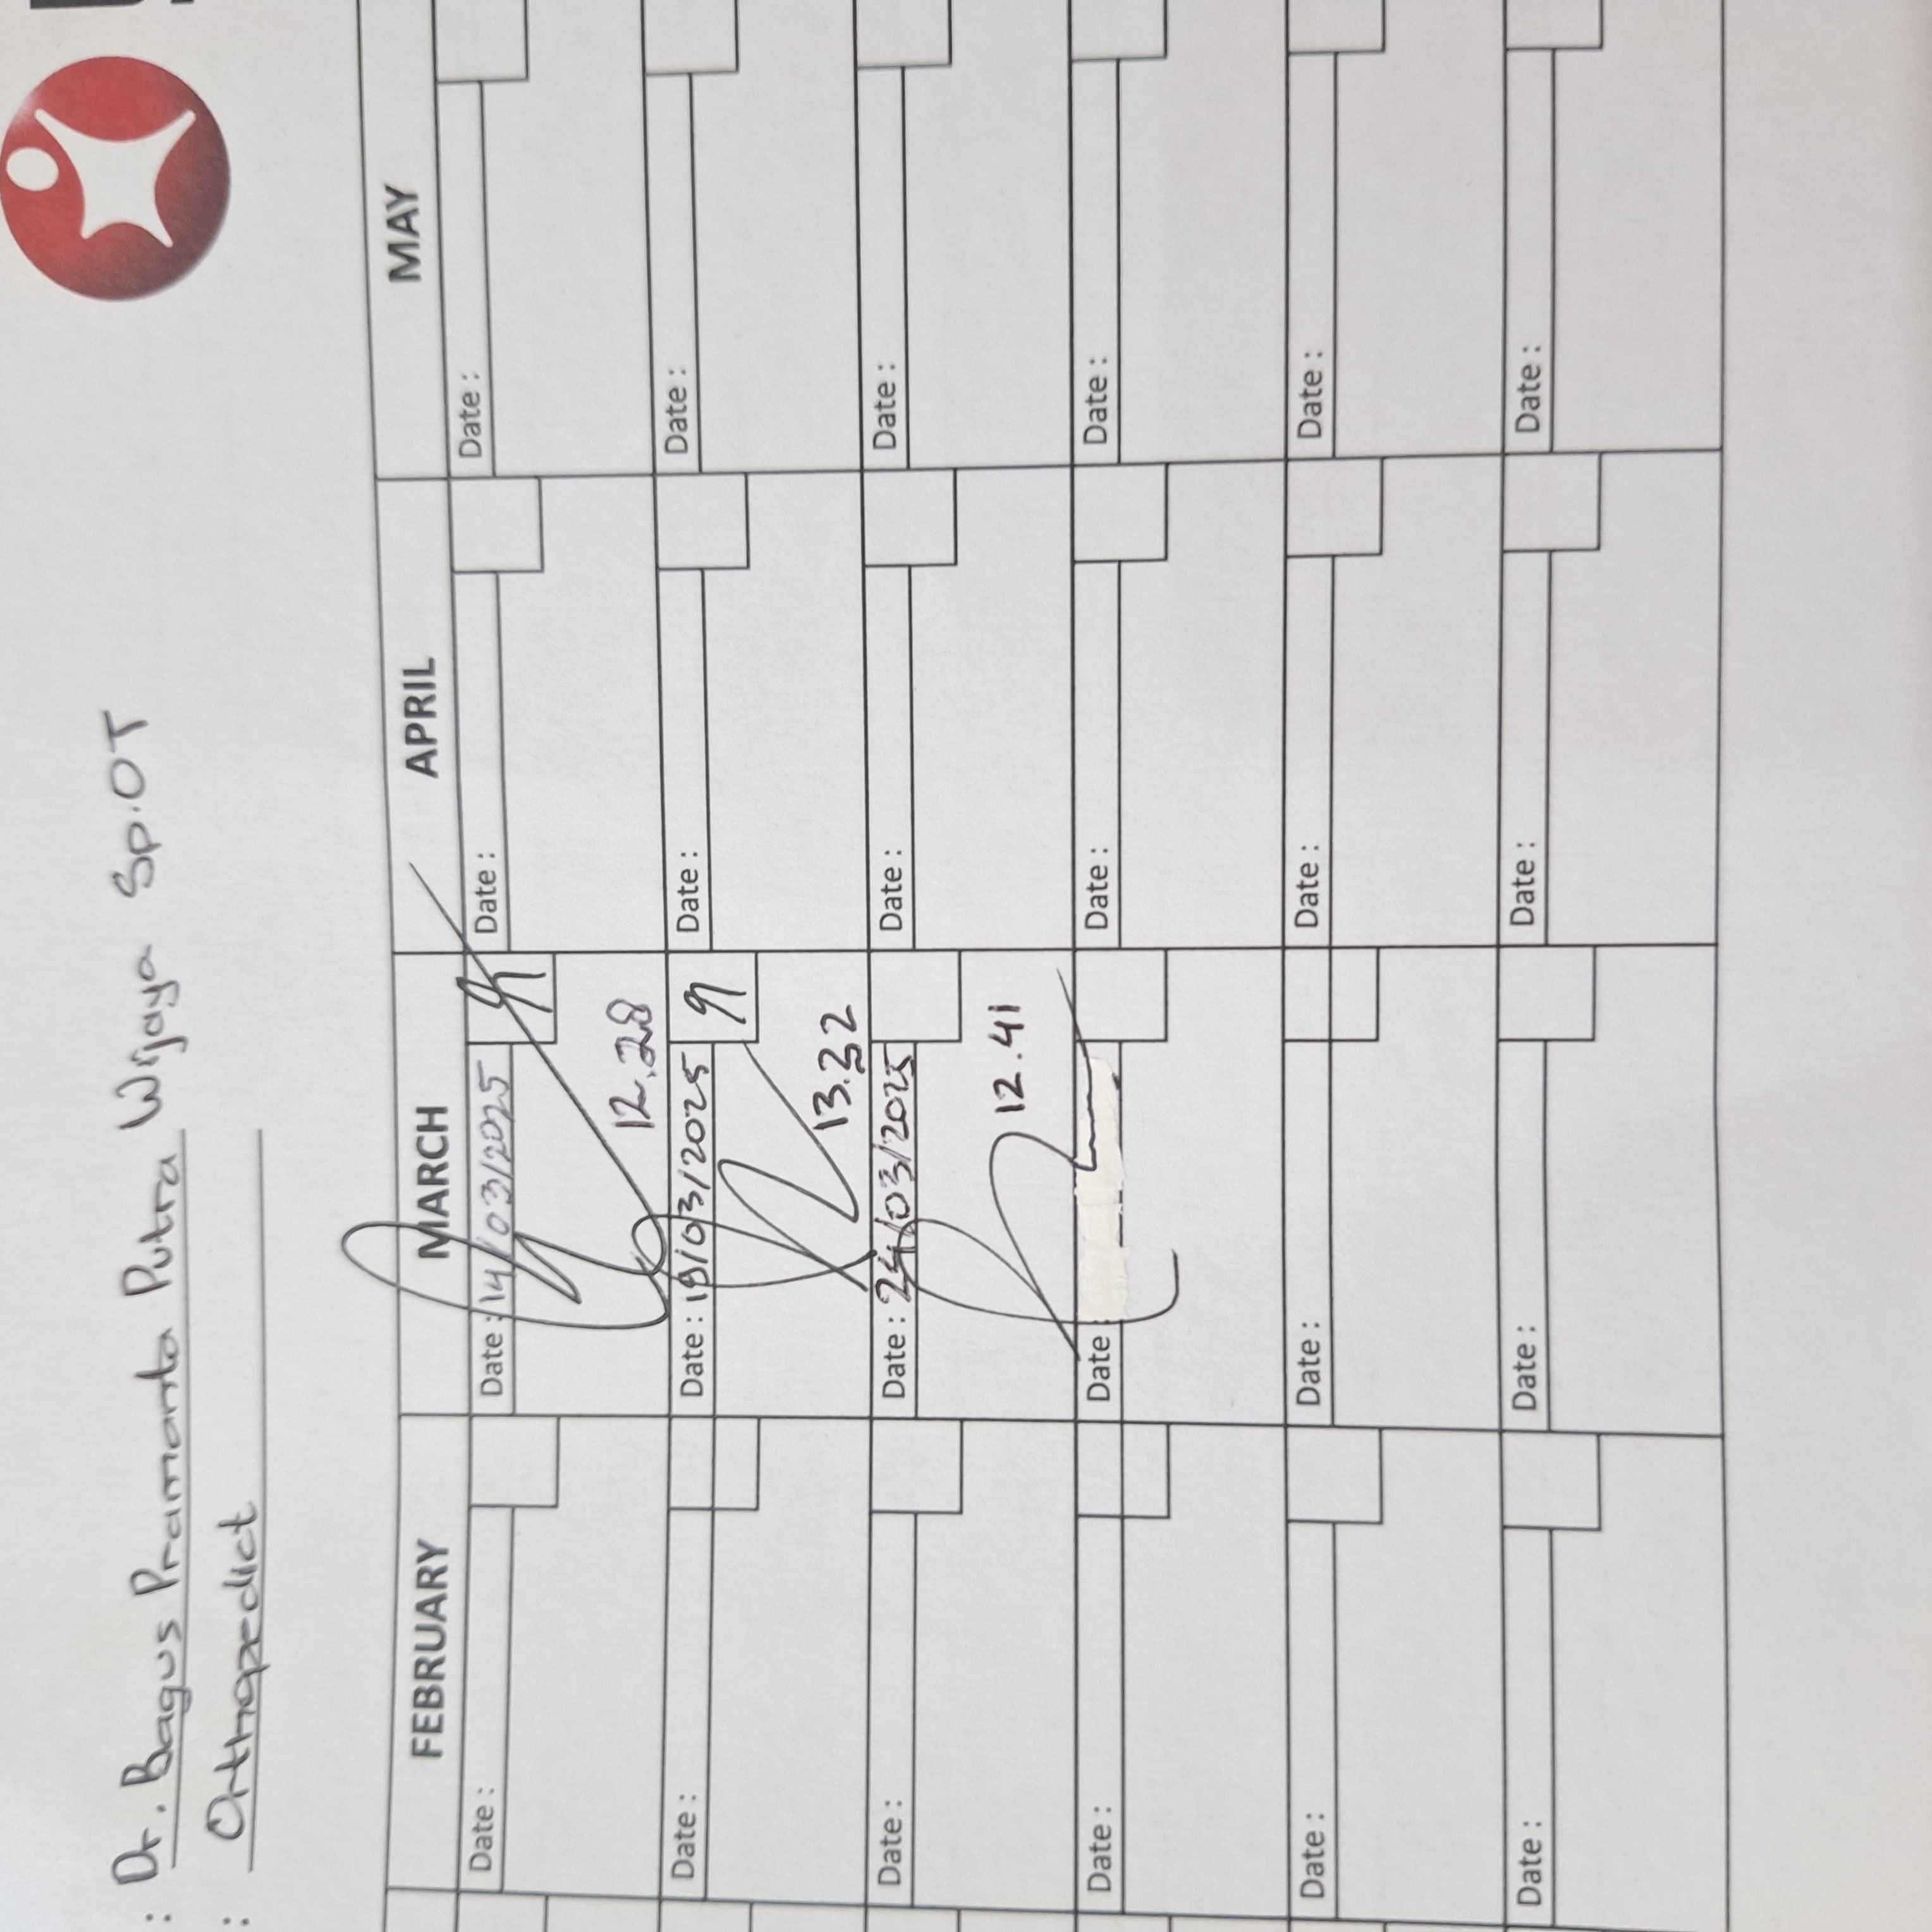 : Dr. Bagus Pramanta Putra Wijaya Sp.OT
: Orthopedict
FEBRUARY MARCH APRIL MAY
Date : Date : 14/03/2025 Date : Date :
12.28
Date : Date : 19/03/2025 Date : Date :
13.32
Date : Date : 24/03/2025 Date : Date :
12.41
Date : Date : Date : Date :
Date : Date : Date : Date :
Date : Date : Date : Date :